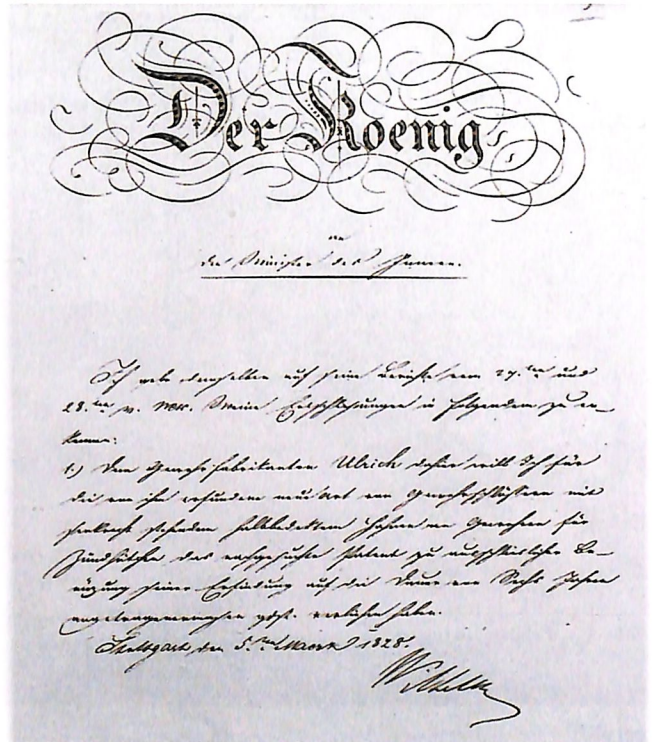 Der Koenig
an
den Minister des Innern.
Ich gebe demselben auf seine Berichte vom 27.ten und
28.ten v. Mon. Meine Entschließungen in Folgendem zu er-
kennen:
1.) Dem Gewehrfabrikanten Ulrich dahier will Ich für
die von ihm erfundene neue Art von Gewehrschlössern mit
senkrecht stehenden Hahnen an Gewehren für
Zündhütchen das nachgesuchte Patent zu ausschließlicher Be-
nüzung seiner Erfindung auf die Dauer von Sechs Jahren
verliehen haben.
Stuttgart den 5.ten Maerz 1828.
Wilhelm